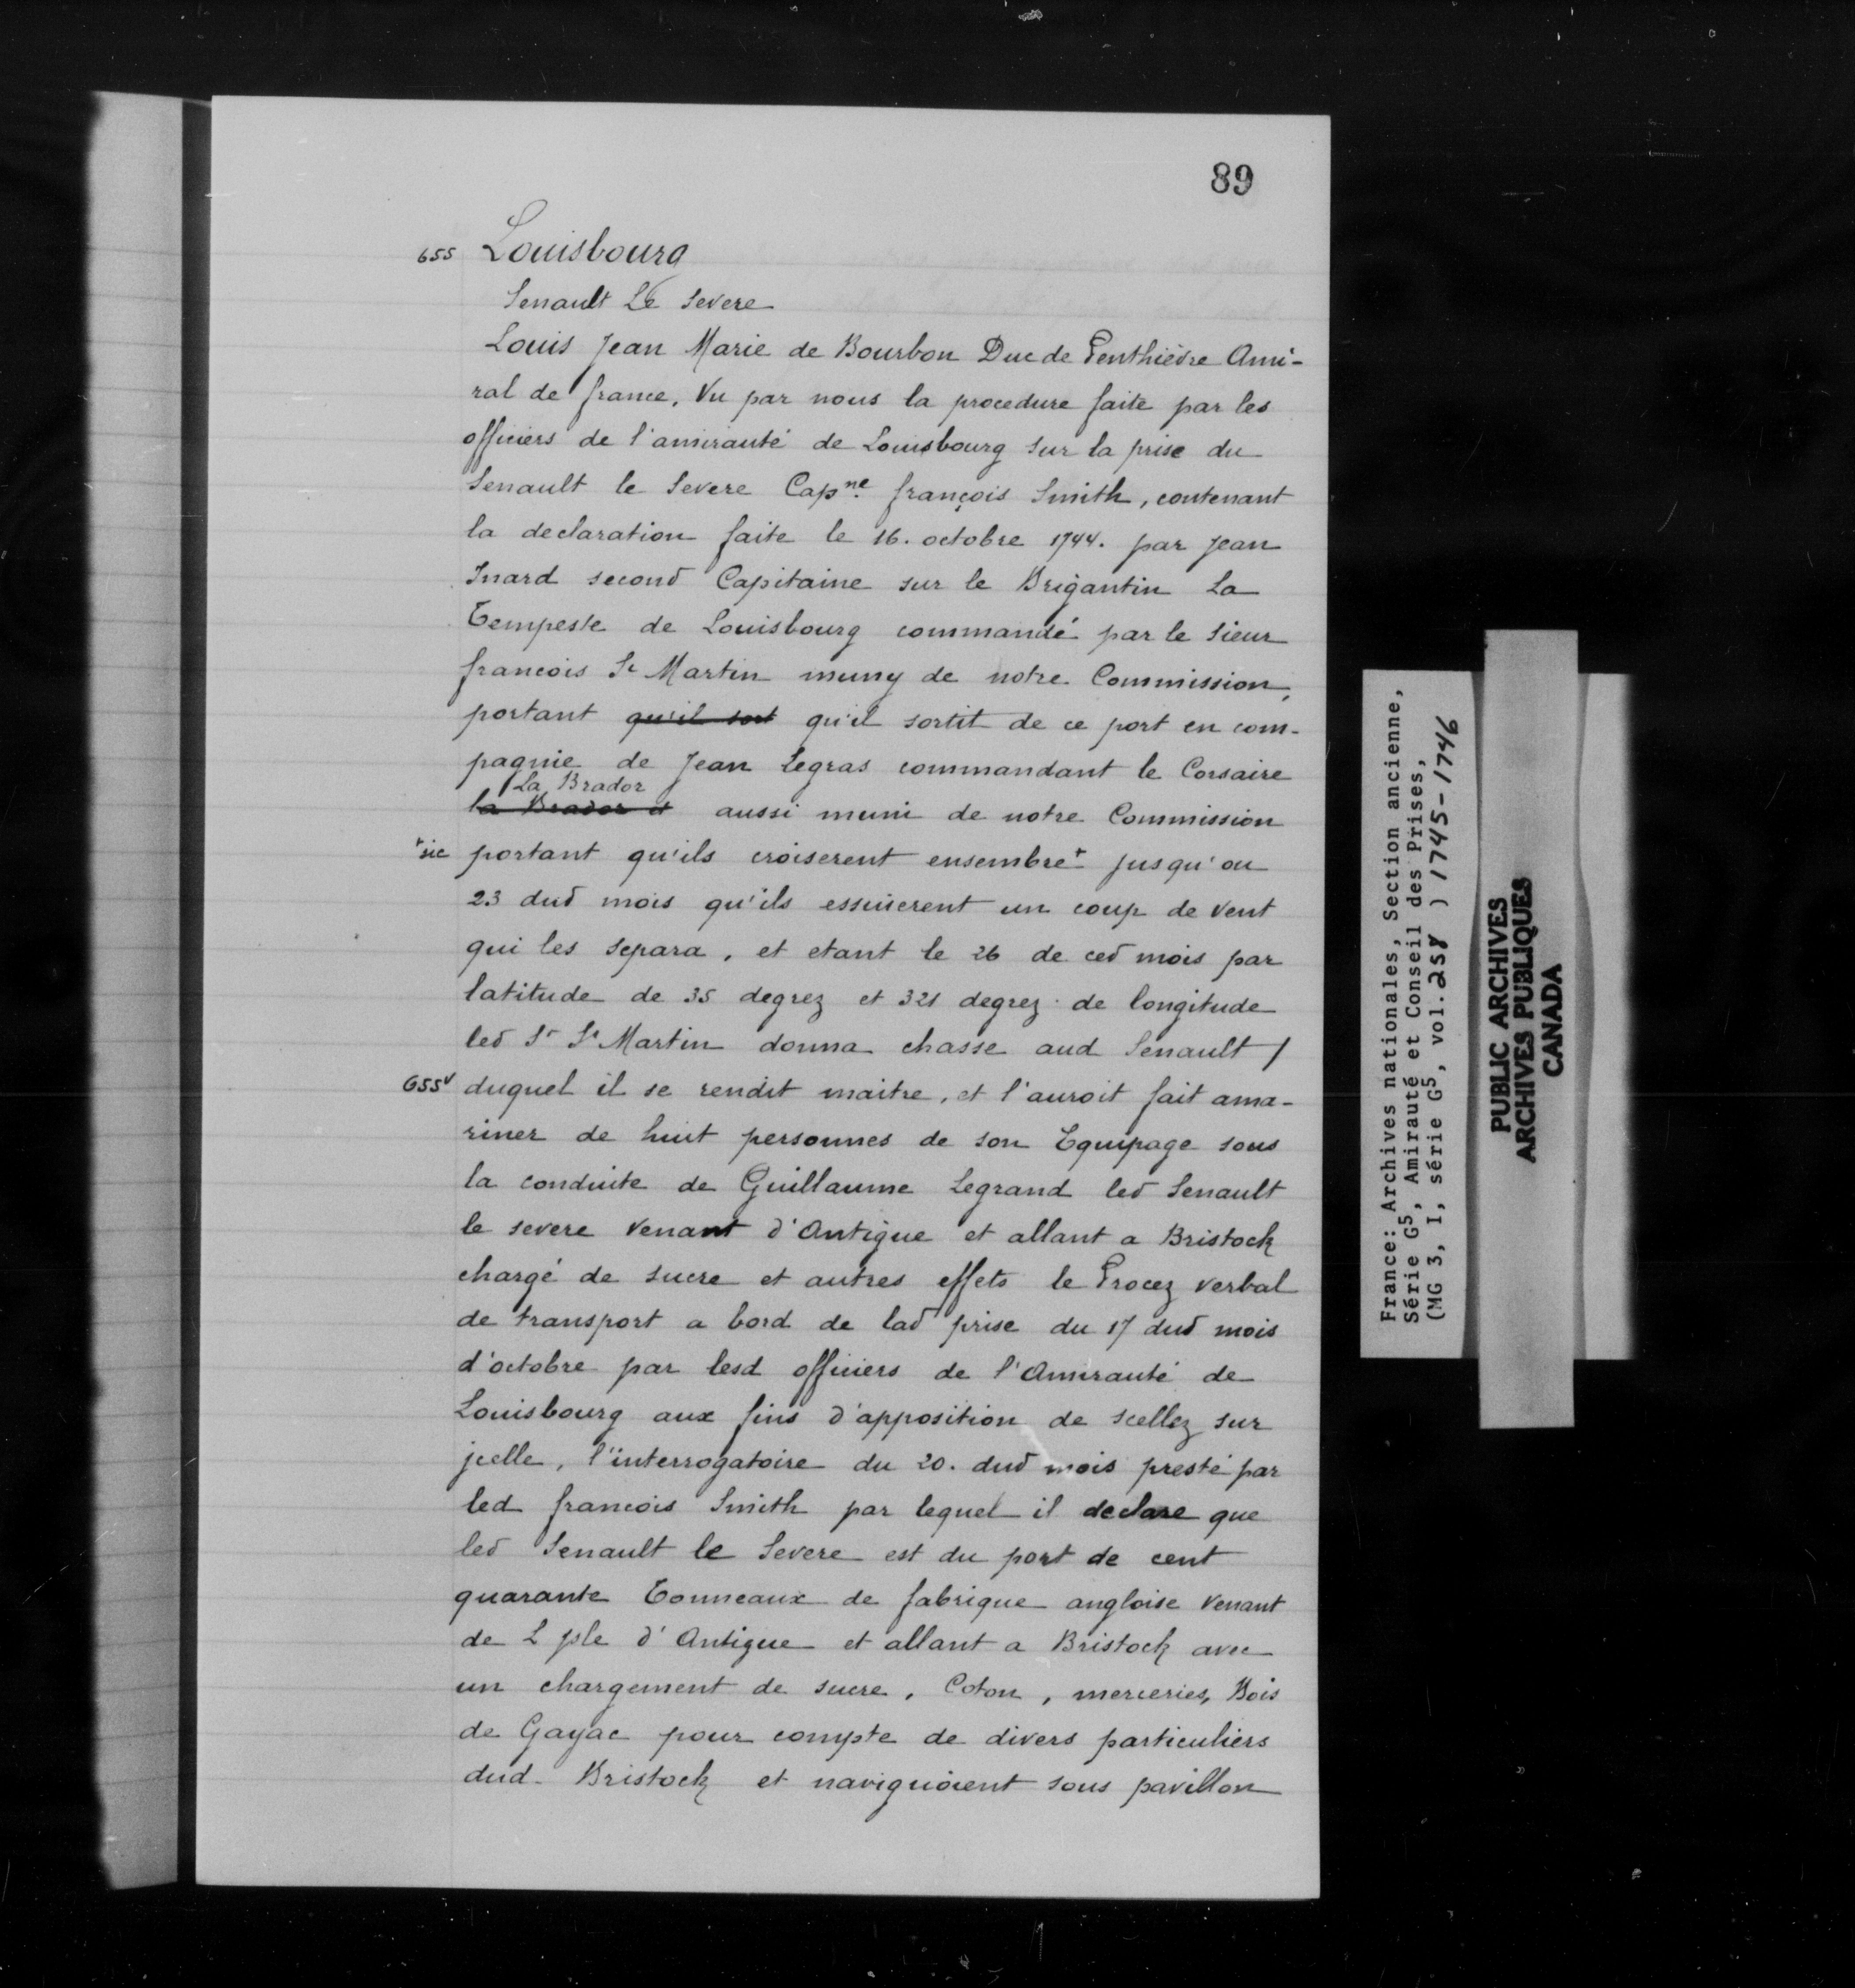 89
655 Louisbourg
Senault Le Severe
Louis Jean Marie de Bourbon Duc de Penthièvre Ami-
ral de france, Vu par nous la procedure faite par les
officiers de l'amirauté de Louisbourg sur la prise du
Senault le Severe Capne françois Smith, contenant
la declaration faite le 16. octobre 1744. par Jean
Inard second Capitaine sur le Brigantin La
Tempeste de Louisbourg commandé par le Sieur
francois St Martin muny de notre Commission,
portant qu'il sort qu'il sortit de ce port en com-
pagnie de Jean Legras commandant le Corsaire
La Brador
la Brador et aussi muni de notre Commission
+sic portant qu'ils croiserent ensembre+ jusqu'ou
23 dud mois qu'ils essuierent un coup de vent
qui les separa, et etant le 26 de ced mois par
latitude de 35 degrez et 321 degrez de longitude
led Sr St Martin donna chasse aud Senault /
655v duquel il se rendit maitre, et l'auroit fait ama-
riner de huit personnes de son Equipage sous
la conduite de Guillaume Legrand led Senault
le severe venant d'Antigue et allant a Bristock
chargé de sucre et autres effets le Procez verbal
de transport a bord de lad prise du 17 dud mois
d'octobre par lesd officiers de l'Amirauté de
Louisbourg aux fins d'apposition de scellez sur
jcelle, l'interrogatoire du 20. dud mois presté par
led francois Smith par lequel il declare que
led Senault le Severe est du port de cent
quarante Tonneaux de fabrique angloise venant
de L jsle d'Antigue et allant a Bristock avec
un chargement de sucre, Coton, merceries, Bois
de Gayac pour compte de divers particuliers
dud Bristock et naviguoient sous pavillon
France: Archives nationales, Section ancienne,
Série G5, Amirauté et Conseil des Prises,
(MG 3, I, série G5, vol. 258 ) 1745-1746
PUBLIC ARCHIVES
ARCHIVES PUBLIQUES
CANADA